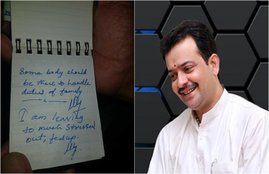 Some body should
be there to handle
duties of family
I am leaving
to much stressed
out, fedup.